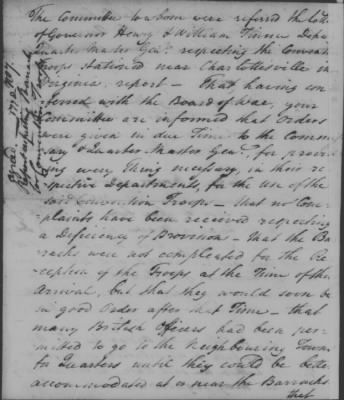 The Committee to whom were referred the letters
of Governor Henry & William Finnie Depu
Quarter Master Genl. respecting the Convention
Troops stationed near Charlottesville in
Virginia, report — That having con
ferred with the Board of War, your
Committee are informed that Orders
were given in due Time to the Commis
sary & Quarter Master Genl. for provid
ing every Thing necessary, in their re
spective Departments, for the use of the
said Convention Troops — that no Com
plaints have been received respecting
a Deficiency of Provision — that the Bar
racks were not compleated for the Re
ception of the Troops at the Time of their
Arrival, but that they would soon be
in good Order after that Time — that
many British Officers had been per
mitted to go to the Neighbouring Towns
for Quarters until they could be better
accommodated at or near the Barracks
that
Report respecting Barracks
for Convention Troops